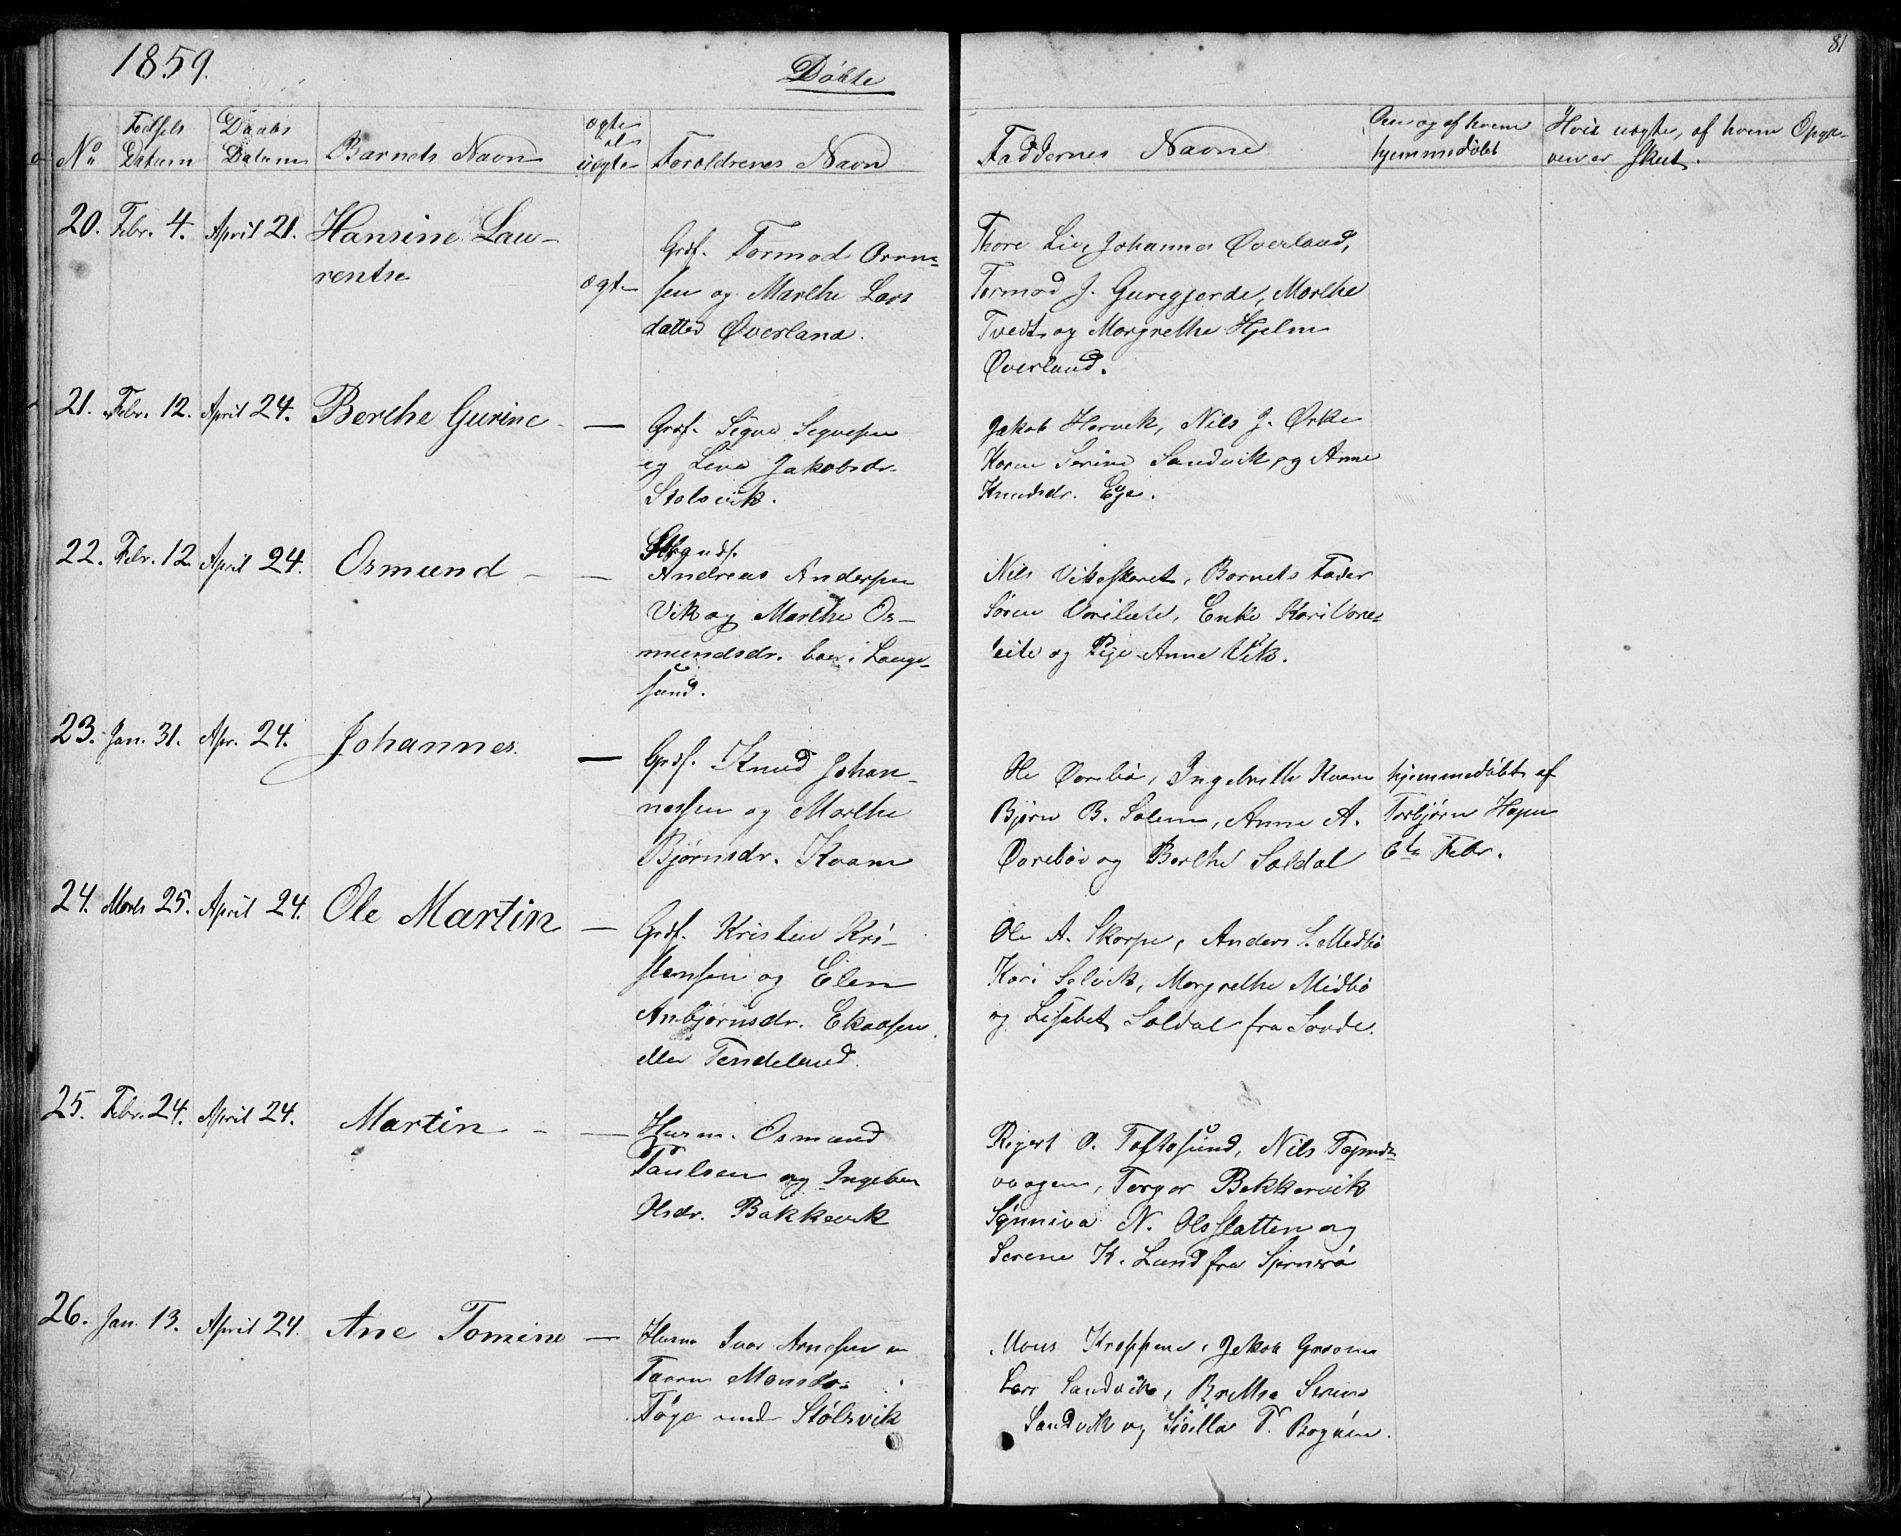 1859.
Døbte
81
No
Fødsels Datum
Daabs Datum
Barnets Navn
ægte el uægte
Forældrenes Navn
Faddernes Navne
Om og af hvem hjemmedøbt
Hvis uægte, af hvem Opgi-
ven er skeet.
20. Febr. 4. April 21. Hansine Lau-
rentse
ægte
Grdf. Tormod Orm-
sen og Marthe Lars
datter Øverland.
Thore Lie, Johannes Øverland,
Tormod J. Guregjerde, Marthe
Tvedt og Margrethe Hjelm
Øverland.
21. Febr. 12. April 24. Berthe Gurine - —
Grdf. Sigva Sigvesen
og Liva Jakobsdr.
Stolsvik.
Jakob Hervik, Nils J. Ørke
Karen Serine Sandvik og Anne
Knudsdr. Eje.
22. Febr. 12 April 24. Osmund - —
Strands.
Andreas Andersen
Vik og Marthe Os-
mundsdr. boe i Lange-
sund.
Nils Vikeskoret, Barnets Fader
Søren Voreleite, Enke Kari Vore-
leite og Pige Anne Vik.
23. Jan. 31. Apr. 24. Johannes. —
Grdf. Knud Johan-
nessen og Marthe
Bjørnsdr. Kvam
Ole Øvrebø, Ingebrith Kvam
Bjørn B. Solem, Anne A.
Øvrebø og Berthe Saldal
hjemmedøbt af
Torbjørn Hapn
6te Febr.
24. Marts 25. April 24. Ole Martin —
Grdf. Kristen Kri-
stensen og Elen
Anbjørnsdr. Ekaasen
eller Tendeland.
Ole A. Skorpe, Anders S. Medbø
Kari Selvik, Margrethe Midbø
og Lisabet Saldal fra Sovde.
25. Febr. 24. April 24. Martin - —
Husm. Osmund
Paulsen og Ingebor
Olsdr. Bakkevik
Rejert O. Toftøsund, Nils
vaagen, Torger Bekkervik
Sønniva N. Olsslatten og
Serene K. Lund fra Sjernerø
26. Jan. 13. April 24. Ane Tomine —
Husm Ivar Arnesen
Taarn Monsdr.
Tøge under Stølsvik
Mons Kroppene, Jakob
Lars Sandvik, Brithe Serine
Sandvik og Sisilla T. Bogøen.